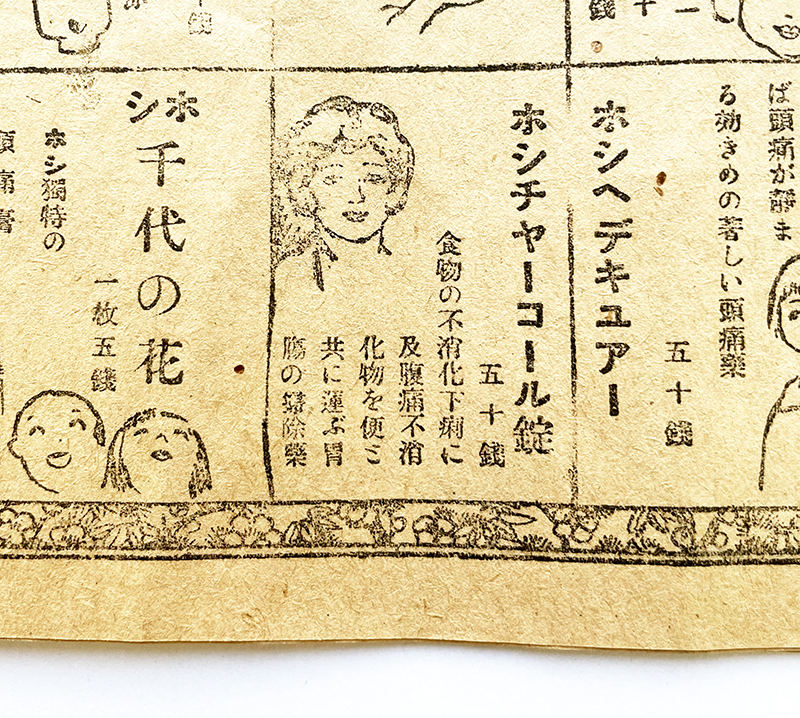 一
十
錢
十錢
ば頭痛が靜ま
る効きめの著しい頭痛藥
五十錢
ホシヘデキユアー
ホシチヤーコール錠
五十錢
食物の不消化下痢に
及腹痛不消
化物を便と
共に運ぶ胃
腸の掃除藥
ホシ
千代の花
一枚五錢
ホシ獨特の
頭痛膏